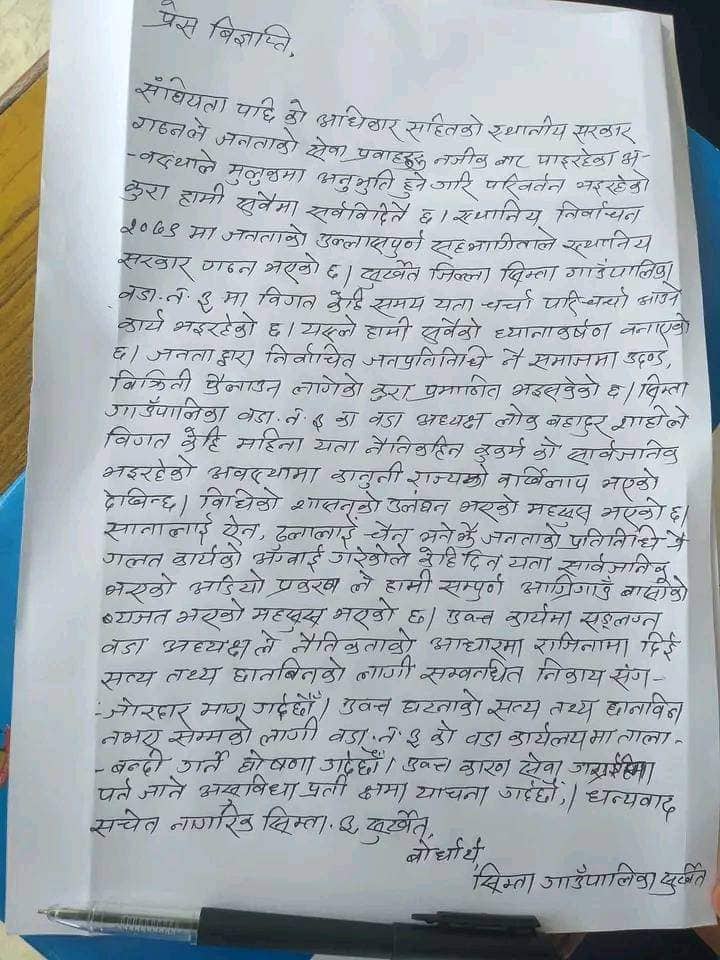 प्रेस बिज्ञप्ति,
संघियता पछि को अधिकार सहितको स्थानीय सरकार
गठनले जनताको सेवा प्रवाहहरु नजीक बाट पाइरहेका अ-
-वस्थाले मुलुकमा अनुभुति हुने गरि परिवर्तन भइरहेको
कुरा हामी सुवैमा सर्वविदितै छ। स्थानिय निर्वाचन
२०७९ मा जनताको उल्लासपुर्ण सहभागिताले स्थानिय
सरकार गठन भएको छ। सुर्खेत जिल्ला सिम्ता गाउँपालिका
वडा.नं. ३ मा विगत केहि समय यता चर्चा परिचर्चा आउने
कार्य भइरहेको छ। यसले हामी सुवैको ध्यानाकर्षण वनाएको
छ। जनता द्वारा निर्वाचित जनप्रतिनिधि नै समाजमा उदण्ड,
बिक्रिती फैलाउन लागेको कुरा प्रमाणित भइसकेको छ। सिम्ता
गाउँपालिका वडा.नं.३ का वडा अध्यक्ष लोक बहादुर शाहीले
विगत केहि महिना यता नैतिकहिन कुकर्म को सार्वजानिक
भइरहेको अवस्थामा कानुनी राज्यको वर्खिलाप भएको
देखिन्छ। विधिको शासनको उलंघन भएको महसुस भएको छ।
सानालाई ऐन, ठुलालाई चैन भनेझै जनताको प्रतिनिधि नै
गलत कार्यको अँगवाई गरेकोले केहि दिन यता सार्वजनिक
भएको अडियो प्रकरण ले हामी सम्पुर्ण आग्रिगाउँ बासीको
ब्यजत भएको महसुस भएको छ। उक्त कार्यमा सङ्लग्न
वडा अध्यक्ष ले नैतिकताको आधारमा राजिनामा दिई
सत्य तथ्य छानबिनको लागी सम्वन्धित निकाय संग-
-जोरदार माग गर्दछौँ। उक्त घटनाको सत्य तथ्य छानविन
नभए सम्मको लागी वडा.नं.३ को वडा कार्यलयमा ताला-
-बन्दी गर्ने घोषणा गर्दछौँ। उक्त कारण सेवा
पर्न जाने असुविधा प्रती क्षमा याचना गर्दछौं,। धन्यवाद
सचेत नागरिक सिम्ता.३,सुर्खेत,
बोर्धाथ,
सिम्ता गाउँपालिका सुर्खेत